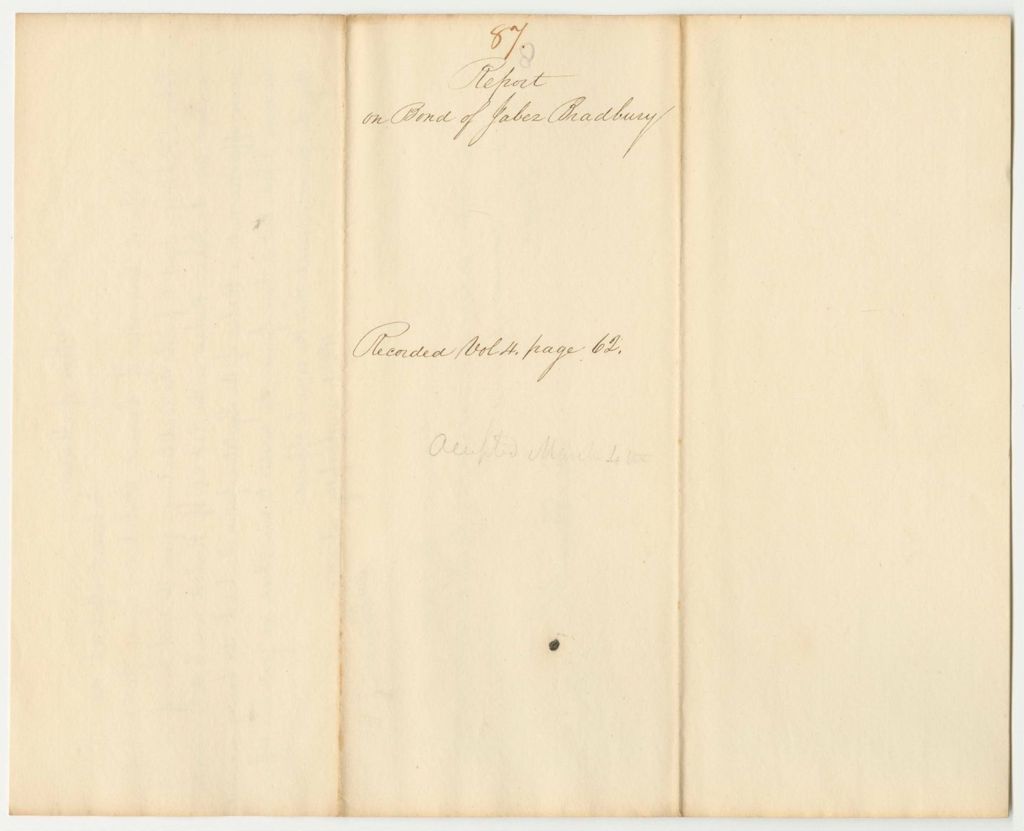 87.
8
Report
on Bond of Jabez Bradbury
Recorded Vol 4. page 62.
Accepted March